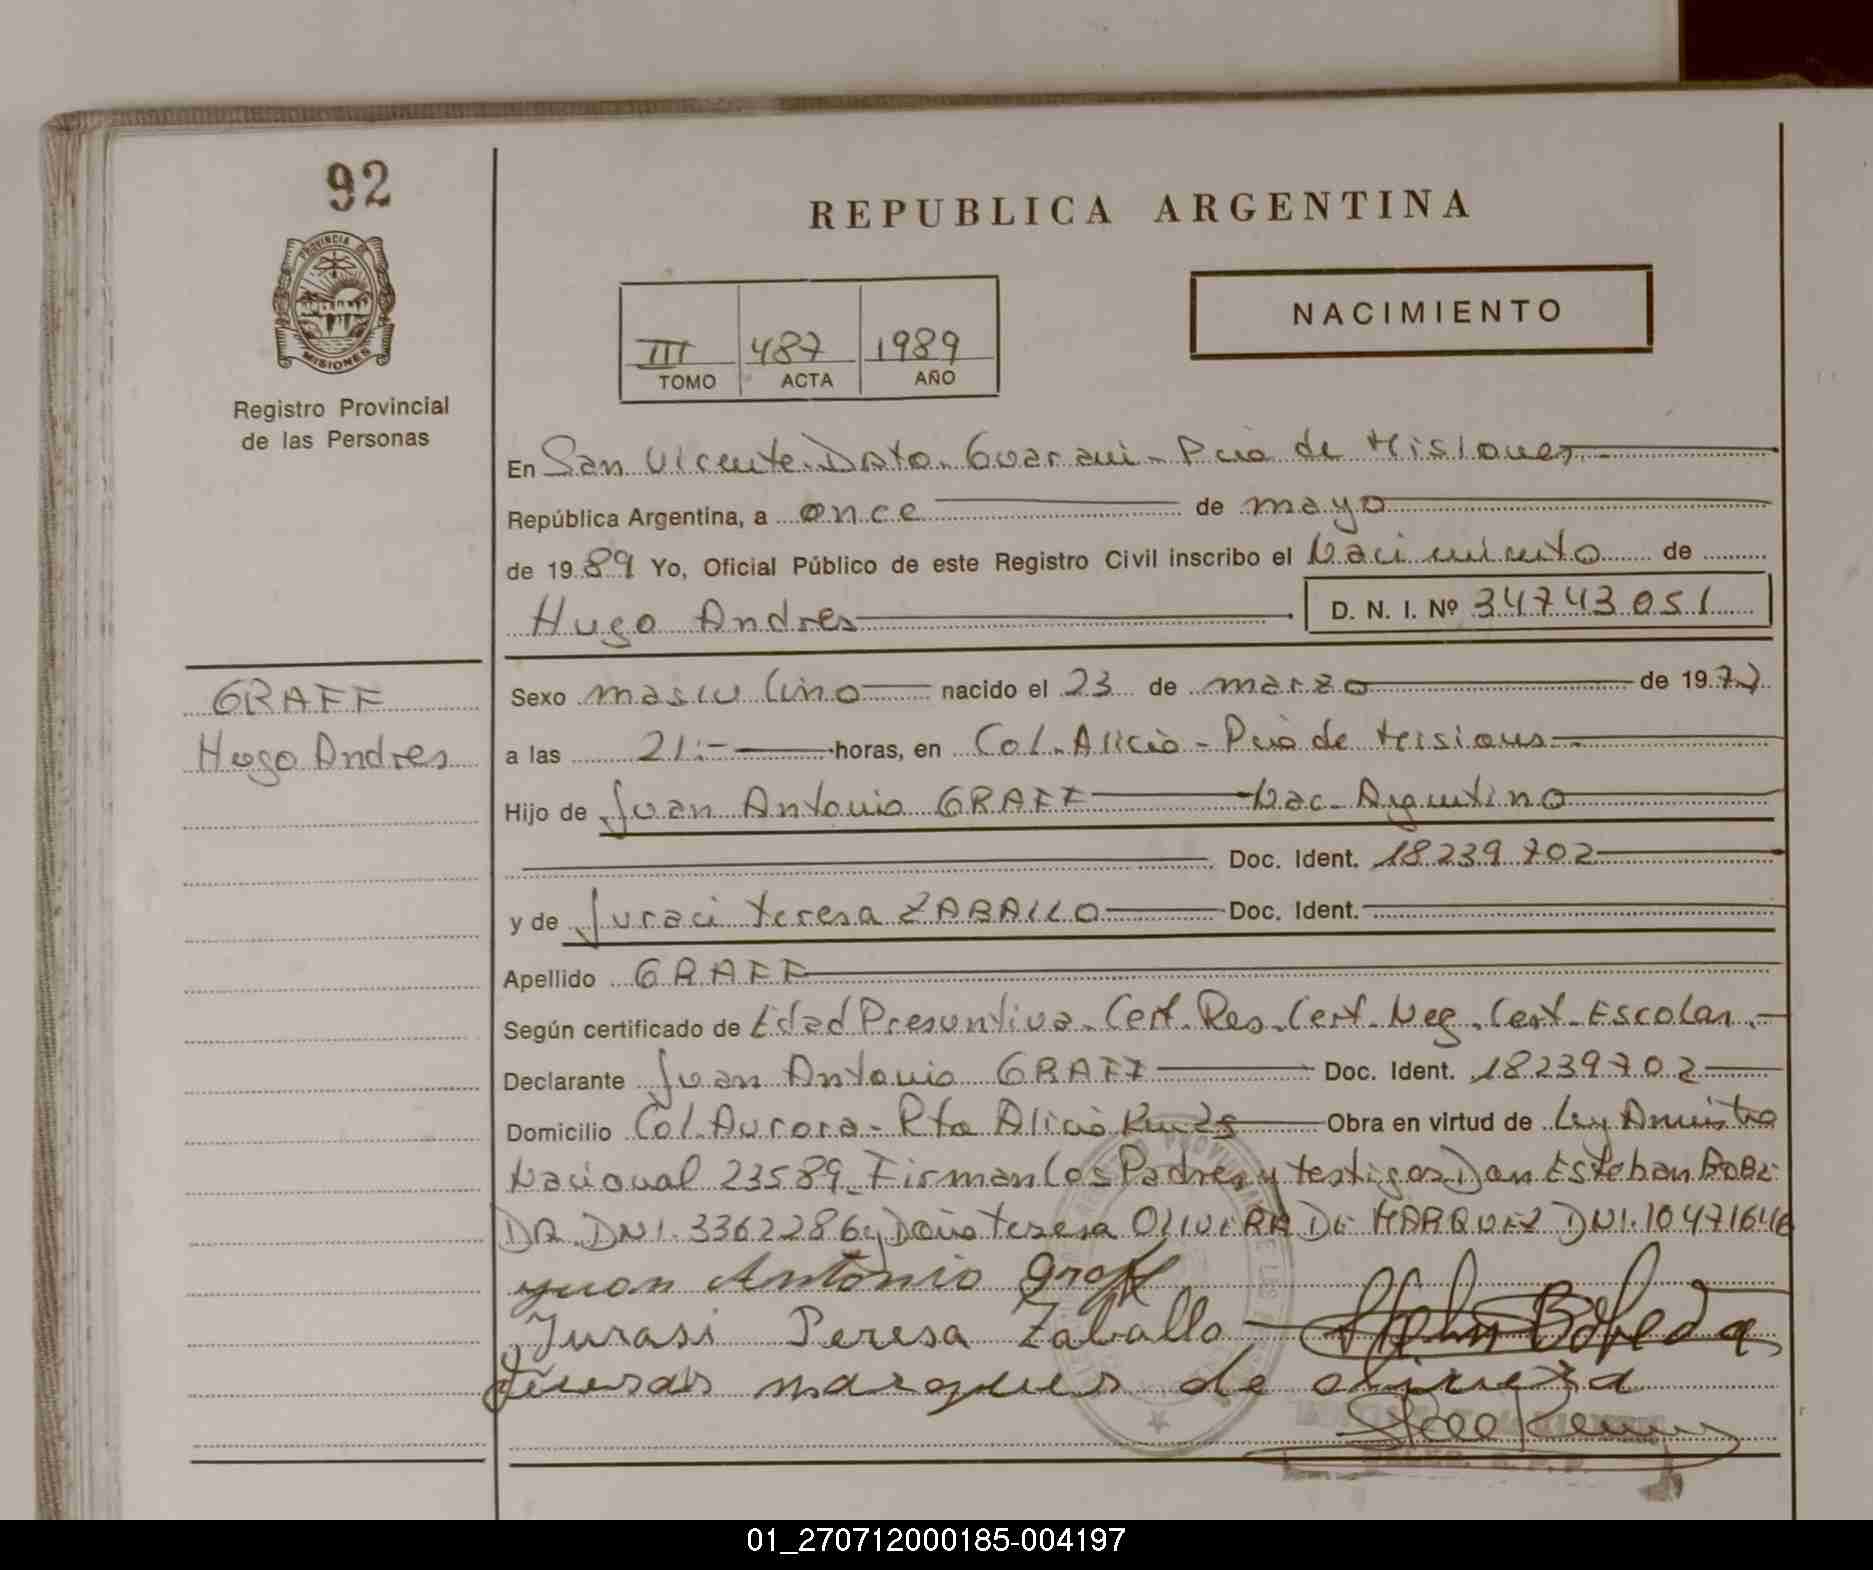 92
PROVINCIA DE
MISIONES
Registro Provincial
de las Personas
REPUBLICA ARGENTINA
III 487 1989
TOMO ACTA AÑO
NACIMIENTO
En San Vicente. Dpto. Guarani - Pcia de Misiones
República Argentina, a once de mayo
de 1989 Yo, Oficial Público de este Registro Civil inscribo el Nacimiento de
Hugo Andres D. N. I. Nº 34743051
GRAFF
Hugo Andres
Sexo masculino nacido el 23 de marzo de 1977
a las 21:- horas, en Col. Alicia - Pcia de Misiones
Hijo de Juan Antonio GRAFF Nac. Argentino
Doc. Ident. 18239702
y de Juraci teresa ZABALLO Doc. Ident.
Apellido GRAFF
Según certificado de Edad Presuntiva. Cert. Res. Cert. Neg. Cert. Escolar.
Declarante Juan Antonio GRAFF Doc. Ident. 18239702
Domicilio Col. Aurora - Pto Alicia Obra en virtud de Ley Amnistia
Nacional 23589. Firman los Padres y testigos Don Esteban BOBE
DA. DNI. 3362286 y Doña teresa OLIVERA DE MARQUEZ DNI. 10471646
juan Antonio graff
Jurasi Teresa Zaballo
marques de olivera
01_270712000185-004197